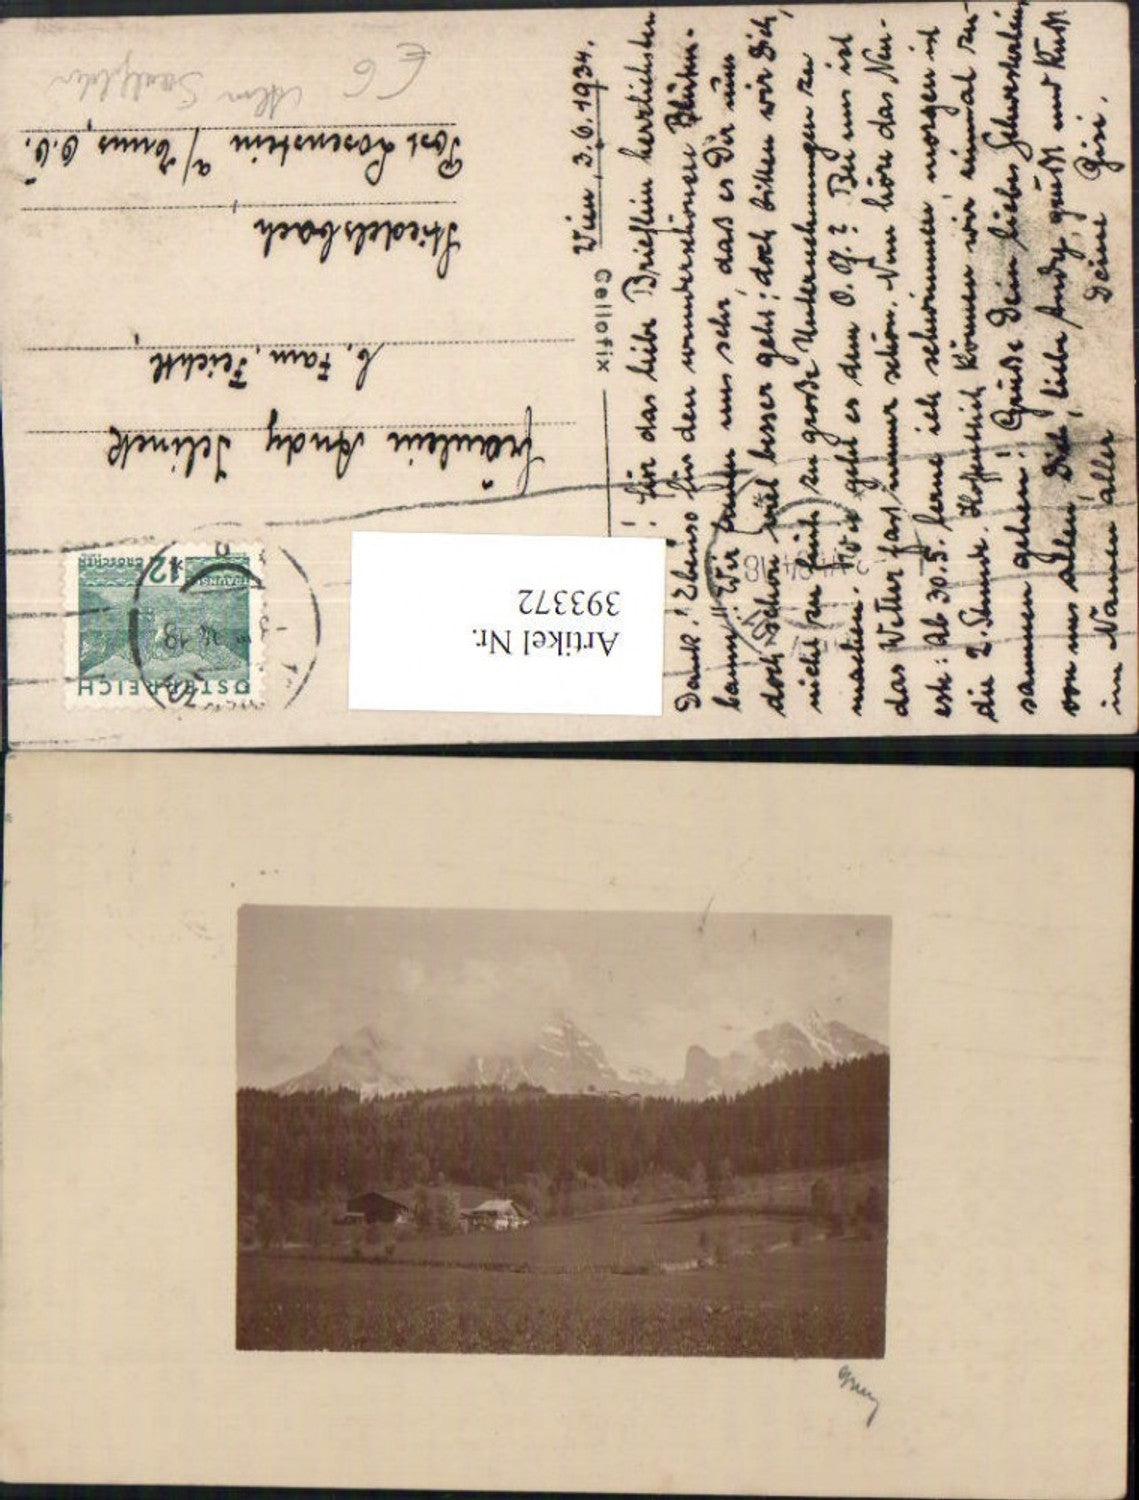 Wien, 3.6.1934.
! Für das liebe Brieflein herzlichsten
Dank! Ebenso für den wunderschönen Blüten-
baum!! Wir freuen uns sehr, daß es Dir nun
doch schon viel besser geht; doch bitten wir Dich,
nicht zu früh zu große Unternehmungen zu
machen. Wie geht es dem O. O.? Bei uns ist
das Wetter fast immer schön. Nun höre das Neu-
este: Ab 30.5. lerne ich schwimmen, morgen ist
die 2. Stunde. Hoffentlich können wir einmal zu-
sammen gehen! Grüße Dein liebes Schwesterlein,
von uns allen Dich, liebe Andy, grüßt und küßt
im Namen aller
Deine Gusi.
Cellofix
Fräulein Andy Jelinek
b. Fam. Feichtl,
Stiedelsbach
Post Losenstein a/Enns O.Ö.
Alm Saalfelden
€ 6
ÖSTERREICH
TRAUNSEE
12
GROSCHEN
Artikel Nr.
393372